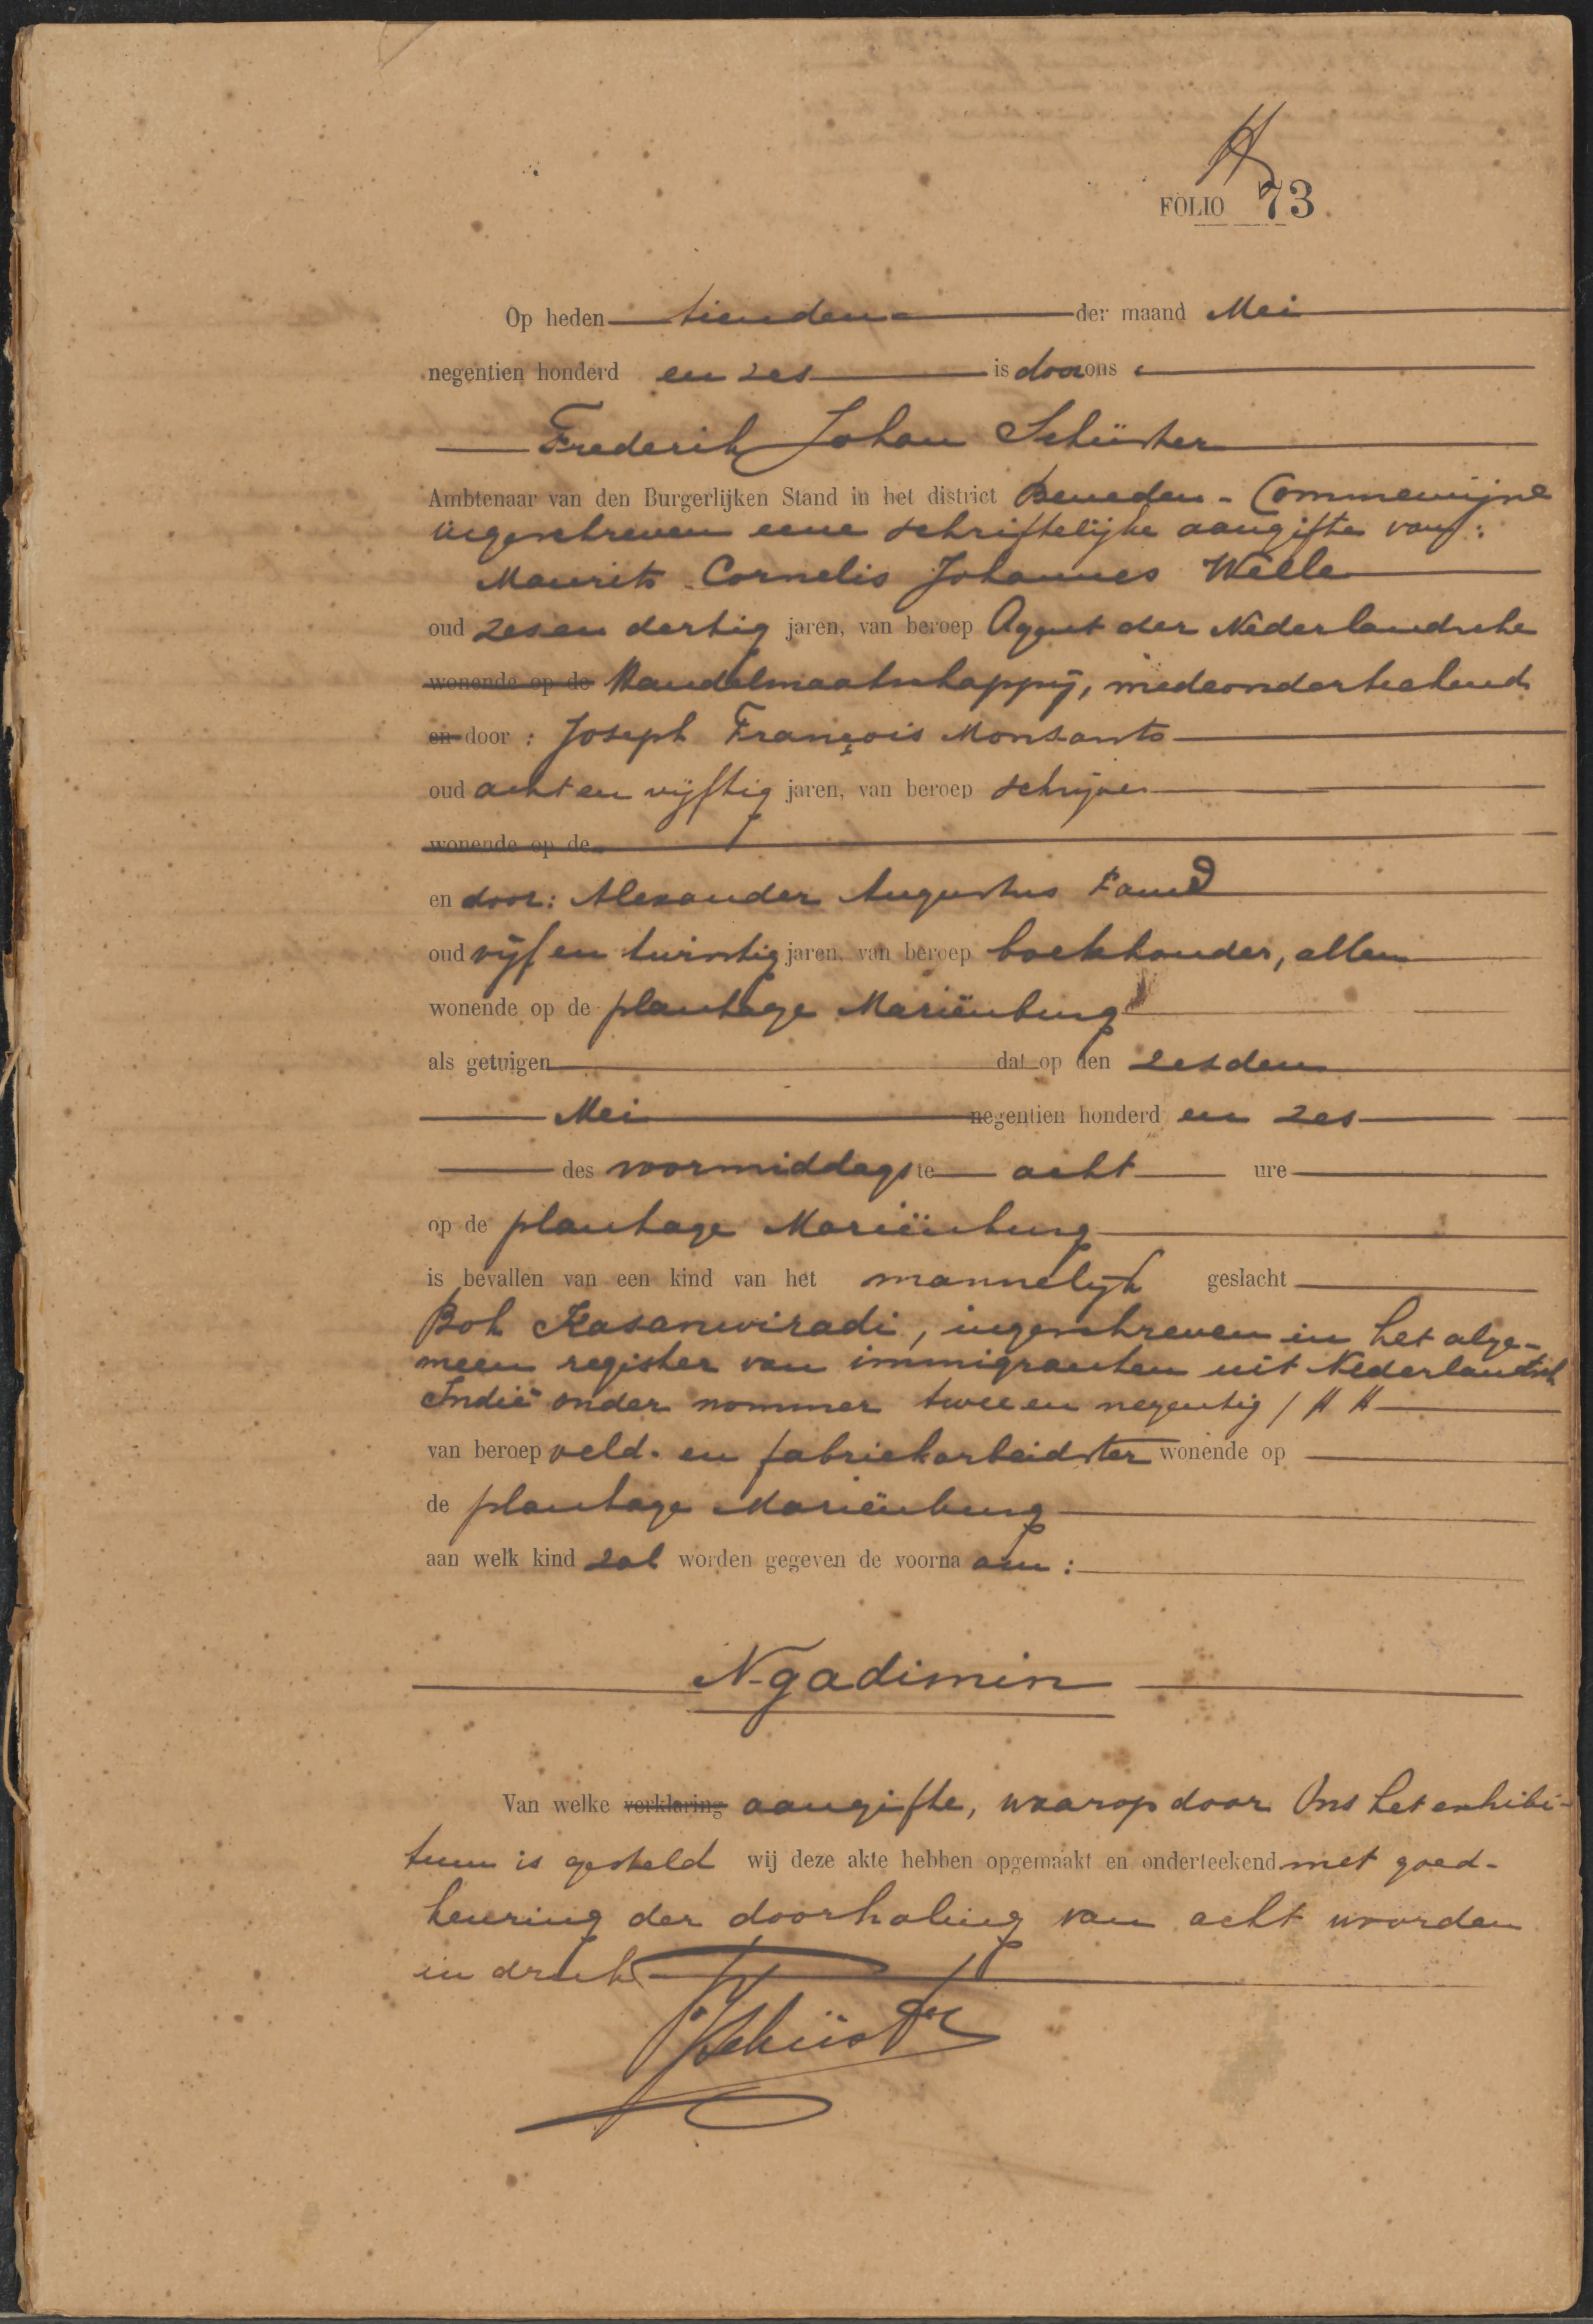 FOLIO 73
Op heden tienden der maand Mei
negentien honderd en zes is door ons
Frederik Johan Schüster
Ambtenaar van den Burgerlijken Stand in het district Beneden-Commewijne
ingeschreven eene schriftelijke aangifte van:
Maurits Cornelis Johannes Welle
oud zesendertig jaren, van beroep Agent der Nederlandsche
wonende op de Handelmaatschappij, medeonderteekend
en door: Joseph François Monsanto
oud achtenvijftig jaren, van beroep schrijver
wonende op de
en door: Alexander Augustus
oud vijfentwintig jaren, van beroep boekhouder, allen
wonende op de plantage Mariënburg
als getuigen dat op den zesden
Mei negentien honderd en zes
des voormiddags te acht ure
op de plantage Mariënburg
is bevallen van een kind van het mannelijk geslacht
Bok Kasanwiradi, ingeschreven in het alge-
meen register van immigranten uit Nederlandsch
Indië onder nommer twee en negentig / H H
van beroep veld- en fabriekarbeidster wonende op
de plantage Mariënburg
aan welk kind zal worden gegeven de voornaam:
Ngadimin
Van welke verklaring aangifte, waarop door Ons het exhibi-
tum is gesteld wij deze akte hebben opgemaakt en onderteekend met goed-
keuring der doorhaling van acht woorden
in druk
Schüster